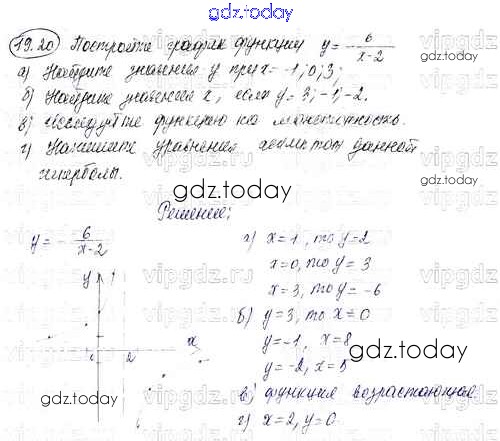 gdz.today
19.20 Постройте график функции y = - 6/(x-2)
а) Найдите значения y при x = -1; 0; 3;
б) Найдите значения x, если y = 3; -1; -2.
в) Исследуйте функцию на монотонность.
г) Напишите уравнения асимптот данной
гиперболы.
gdz.today
gdz.today
Решение:
y = - 6/(x-2)
y
x
0 2
а) x = -1, то y = 2
x = 0, то y = 3
x = 3, то y = -6
б) y = 3, то x = 0
y = -1, x = 8
y = -2, x = 5
gdz.today
gdz.today
в) функция возрастающая
г) x = 2, y = 0.
gdz.today
vipgdz.ru